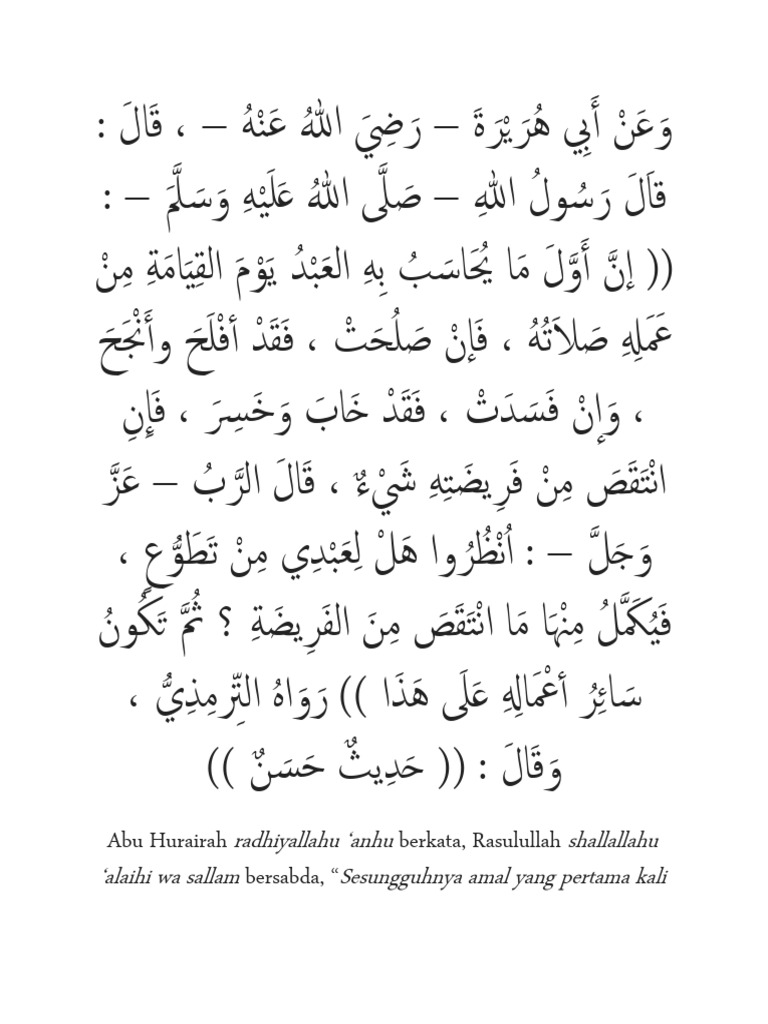 وَعَنْ أَبِي هُرَيْرَةَ – رَضِيَ اللهُ عَنْهُ – ، قَالَ :
قاَلَ رَسُولُ اللهِ – صَلَّى اللهُ عَلَيْهِ وَسَلَّمَ – :
(( إنَّ أَوَّلَ مَا يُحَاسَبُ بِهِ العَبْدُ يَوْمَ القِيَامَةِ مِنْ
عَمَلِهِ صَلاَتُهُ ، فَإنْ صَلُحَتْ ، فَقَدْ أفْلَحَ وأَنْجَحَ
، وَإنْ فَسَدَتْ ، فَقَدْ خَابَ وَخَسِرَ ، فَإِنِ
انْتَقَصَ مِنْ فَرِيضَتِهِ شَيْءٌ ، قَالَ الرَّبُ – عَزَّ
وَجَلَّ – : اُنْظُرُوا هَلْ لِعَبْدِي مِنْ تَطَوُّعٍ ،
فَيُكَمَّلُ مِنْهَا مَا انْتَقَصَ مِنَ الفَرِيضَةِ ؟ ثُمَّ تَكُونُ
سَائِرُ أعْمَالِهِ عَلَى هَذَا )) رَوَاهُ التِّرمِذِيُّ ،
وَقَالَ : (( حَدِيثٌ حَسَنٌ ))
Abu Hurairah radhiyallahu ‘anhu berkata, Rasulullah shallallahu
‘alaihi wa sallam bersabda, “Sesungguhnya amal yang pertama kali